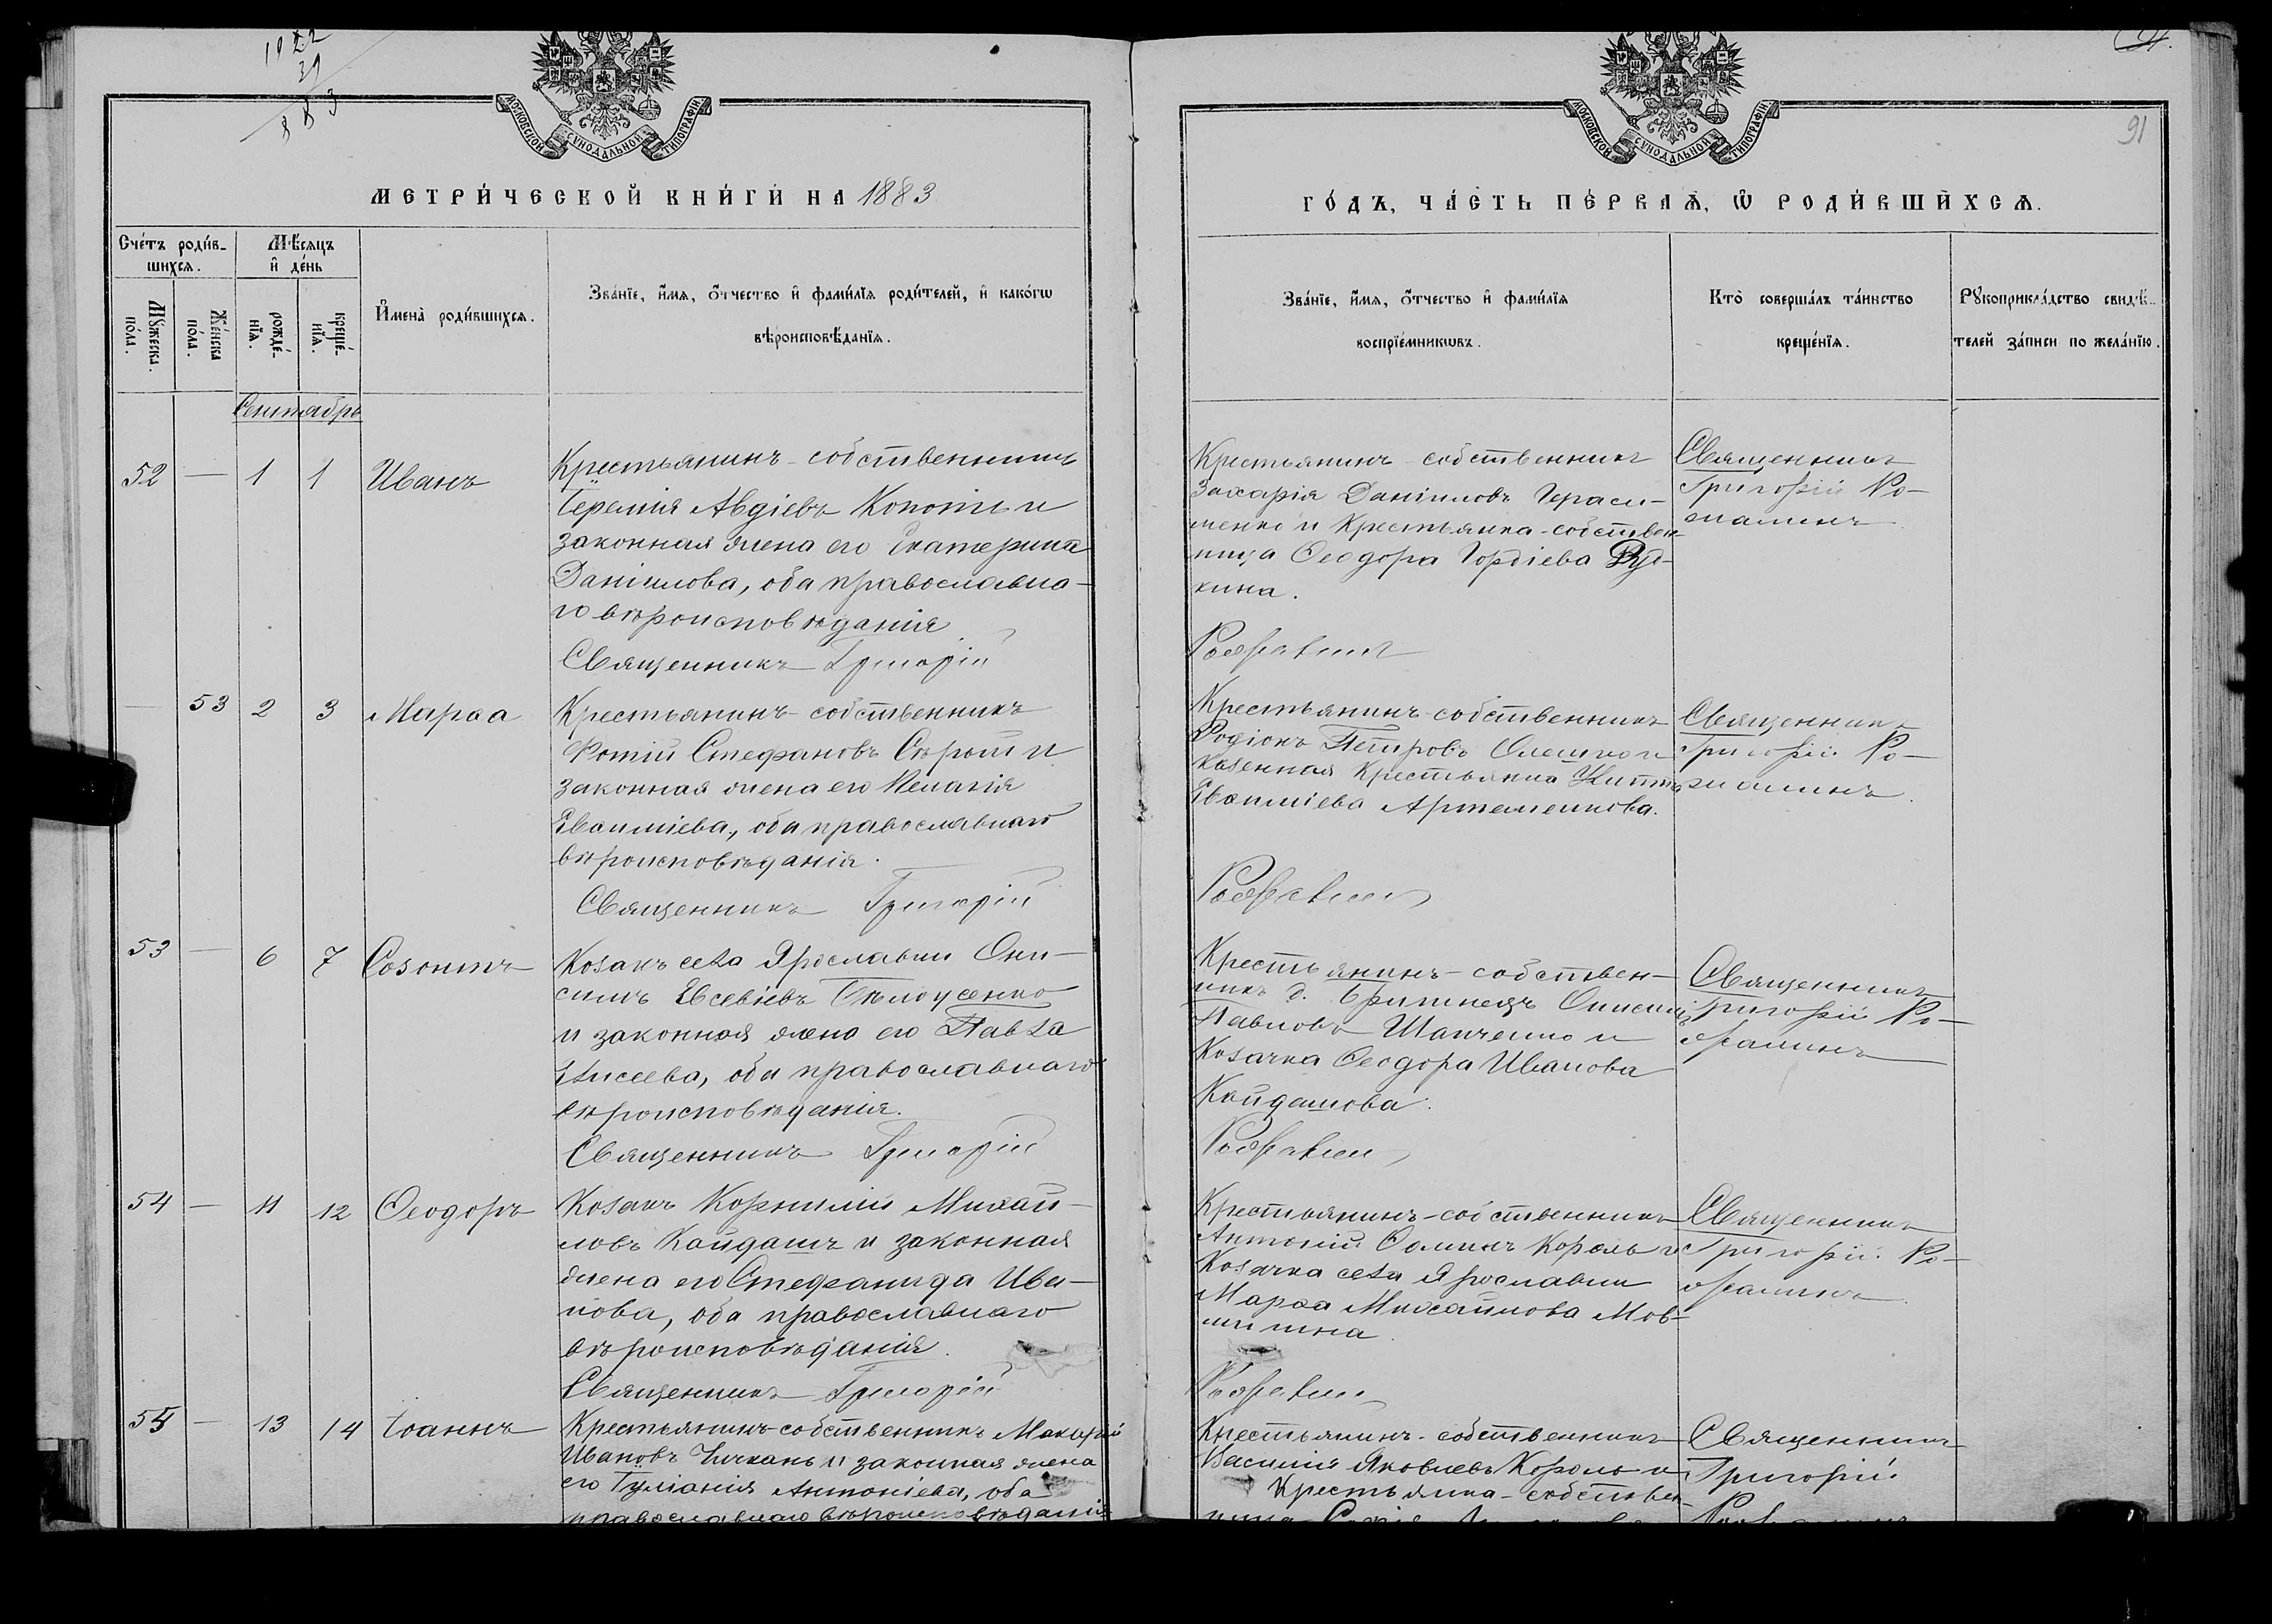 1883
91
МОСКОВСКОЙ СѴНОДАЛЬНОЙ ТИПОГРАФІИ
МОСКОВСКОЙ СѴНОДАЛЬНОЙ ТИПОГРАФІИ
МЕТРИ́ЧЕСКОЙ КНИ́ГИ НА 1883
ГО́ДЪ, ЧА́СТЬ ПЕ́РВАѦ, Ѡ҆ РОДИ́ВШИХСѦ.
Сче́тъ роди́в-
шихсѧ.
Мѣ́сѧцъ
и҆ де́нь
Мꙋ́жеска
по́ла.
Же́нска
по́ла.
рожде́-
нїѧ.
креще́-
нїѧ.
И҆мена̀ роди́вшихсѧ.
Зва́нїе, и҆́мѧ, ѻ҆́тчество и҆ фами́лїѧ роди́телей, и҆ како́гѡ
вѣроисповѣ́данїѧ.
Зва́нїе, и҆́мѧ, ѻ҆́тчество и҆ фами́лїѧ
воспрїе́мникѡвъ.
Кто̀ соверша́лъ та́инство
креще́нїѧ.
Рꙋкоприкла́дство свидѣ́-
телей за́писи по жела́нїю.
Сентабрь
52 — 1 1 Иванъ
Крестьянинъ-собственникъ
Іеремія Авдіевъ Копоть и
законная жена его Екатерина
Даніилова, оба православна-
го вѣроисповѣданія
Священникъ Григорій
Крестьянинъ собственникъ
Захарія Даніиловъ Гераси-
менко и Крестьянка-собствен-
ница Ѳеодора Гордіева Руд-
кина.
Священникъ
Григорій Ро-
— 53 2 3 Марѳа
Крестьянинъ-собственникъ
Фотій Стефановъ Сѣрый и
законная жена его Меланія
Евѳиміева, оба православнаго
вѣроисповѣданія.
Священникъ Григорій
Крестьянинъ-собственникъ
Родіонъ Петровъ Олешко и
Казенная Крестьянка
Евѳиміева Артеменкова.
Священникъ
Григорій Ро-
53 — 6 7 Созонтъ
Козакъ села Ярославки Они-
симъ Евсевіевъ Бѣлоусенко
и законная жена его Павла
Елисеева, оба православнаго
вѣроисповѣданія.
Священникъ Григорій
Крестьянинъ-собствен-
никъ д. Онисимъ
Павловъ Шапченко и
Козачка Ѳеодора Иванова
Кайдашова.
Священникъ
Григорій Ро-
54 — 11 12 Ѳеодоръ
Козакъ Корнилій Михай-
ловъ Кайдашъ и законная
жена его Стефанида Ива-
нова, оба православнаго
вѣроисповѣданія.
Священникъ Григорій
Крестьянинъ-собственникъ
Антоній Ѳоминъ Король и
Козачка села Ярославки
Марѳа Михайлова Мов-
Священникъ
Григорій Ро-
55 — 13 14 Іоаннъ
Крестьянинъ-собственникъ Макарій
Ивановъ Чичкань и законная жена
его Іуліанія Антоніева, оба
православнаго вѣроисповѣданія
Крестьянинъ-собственникъ
Василій Яковлевъ Король и
Крестьянка-собствен-
Священникъ
Григорій